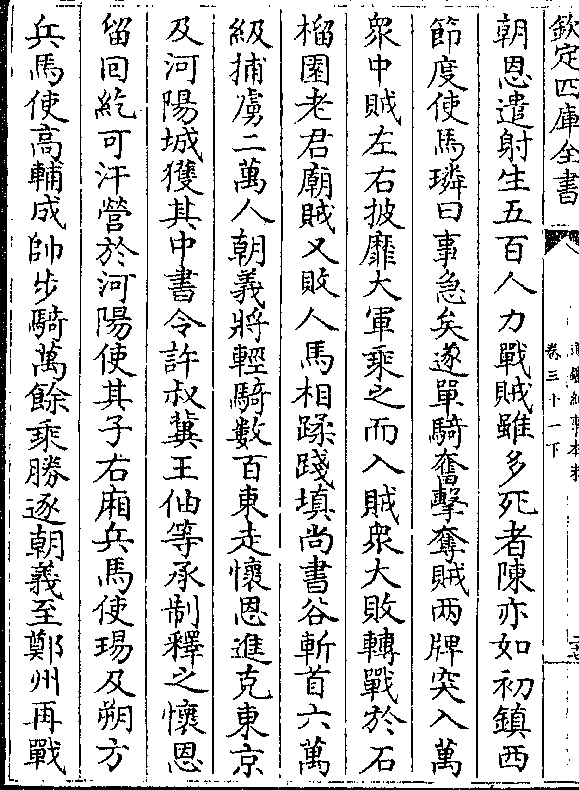 欽定四庫全書
卷三十一下
朝恩遣射生五百人力戰賊雖多死者陳亦如初鎮西
節度使馬璘曰事急矣遂單騎奮擊奪賊兩牌突入萬
衆中賊左右披靡大軍乘之而入賊衆大敗轉戰於石
榴園老君廟賊又敗人馬相蹂踐填尚書谷斬首六萬
級捕虜二萬人朝義將輕騎數百東走懷恩進克東京
及河陽城獲其中書令許叔冀王伷等承制釋之懷恩
留回紇可汗營於河陽使其子右廂兵馬使瑒及朔方
兵馬使高輔成帥步騎萬餘乘勝逐朝義至鄭州再戰